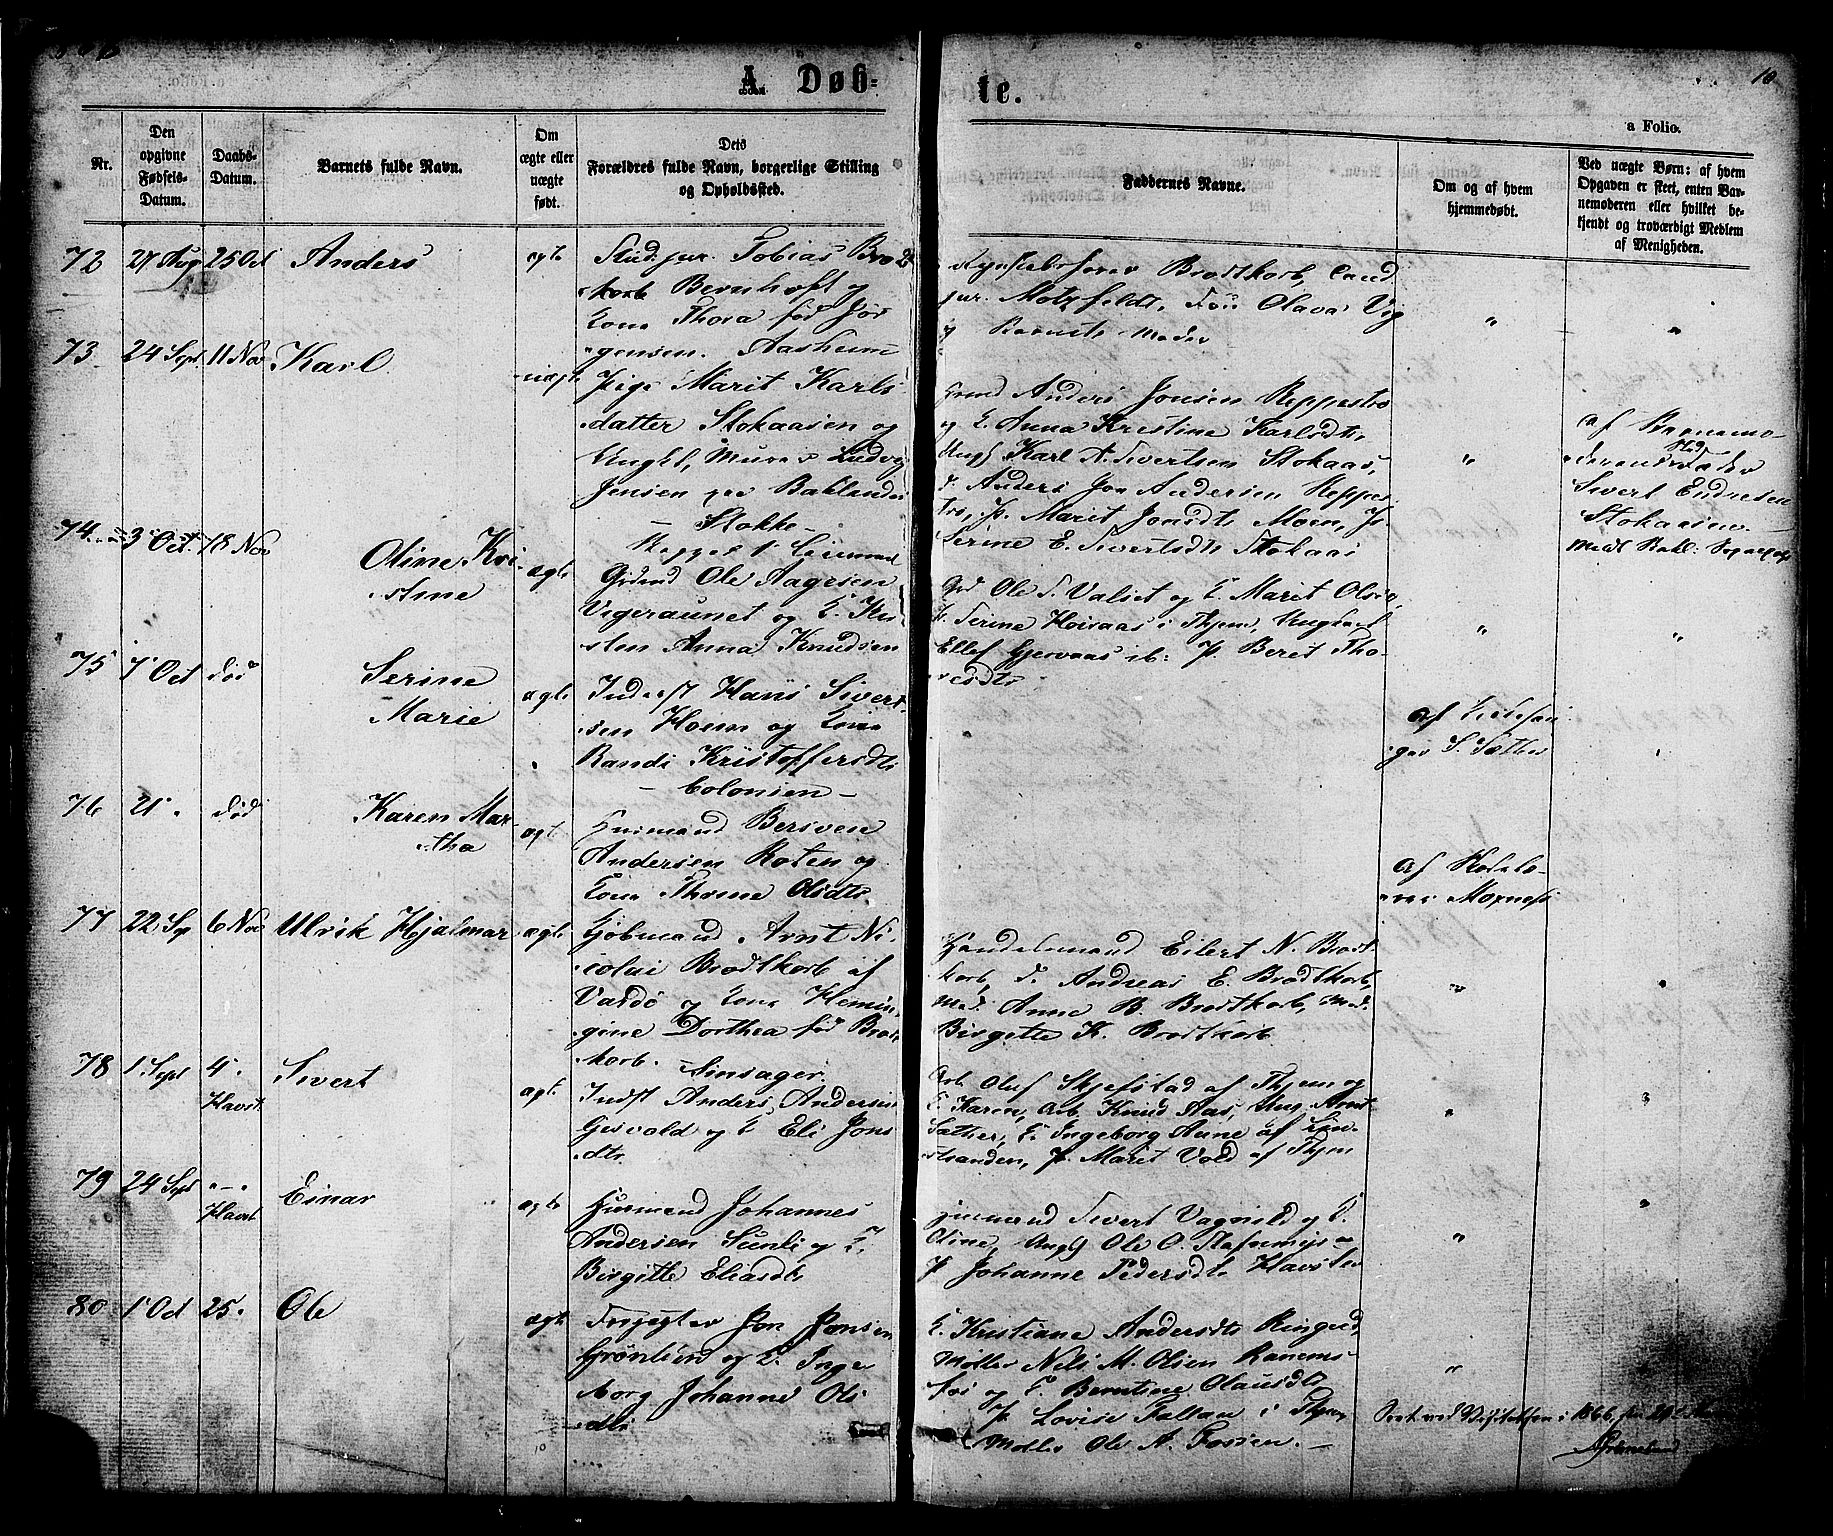 10
A. Døb=
te.
a Folio.
Nr.
Den
opgivne
Fødsels-
Datum.
Daabs-
Datum.
Barnets fulde Navn.
Om
ægte eller
uægte
født.
Dets
Forældres fulde Navn, borgerlige Stilling
og Opholdssted.
Faddernes Navne.
Om og af hvem
hjemmedøbt.
Ved uægte Børn: af hvem
Opgaven er skeet, enten Bar-
nemoderen eller hvilket be-
kjendt og troværdigt Medlem
af Menigheden.
72 27 Aug 25 Oct Anders ægte
Stud. jur. Tobias Brod
korb Bernhoft og
Kone Thora fød Jør
gensen. Aasheim
Brodtkorb, Cand
jur. Motzfeldt, Olava Vig
og Barnets Moder
73 24 Sept. 11 Nov Karl uægte
Pige Marit Karls
datter Stokaasen og
Ungkl, Murer Ludvig
Jensen paa Baklandet
- Stokke -
Anders Jonsen Reppestrø
og E. Anna Kristine Karlsdtr,
Ungk Karl A. Sivertsen Stokaas,
Anders Jon Andersen Reppes
trø, P. Marit Jonsdtr Moen, P.
Serine E. Sivertsdtr Stokaas
af Barnemo-
deren
Sivert Endresen
Stokaasen
74 3 Oct. 18 Nov Oline Kri-
stine ægte
Ole Aagesen
Vigeraunet og E. Kir
sten Anna Knudsen
Ole T. Valset og E. Marit Olsen,
P. Serine Hoisaas i Thjem, Ungkarl
Ellef Gjervaas ib: P. Beret Tho-
resdtr
75 7 Oct død Serine
Marie ægte
Inderst Hans Siverts
sen Hoem og Kone
Randi Kristoffersdtr
- Colonien -
af
S. Sæther
76 21 " død Karen Mar-
tha ægte
Husmand Bersven
Andersen Roten og
Kone Thome Olsdtr
af
Moxness
77 22 Sep 6 Nov Ulrik Hjalmar ægte
Kjøbmand Arnt Ni-
colai Brodtkorb af
Vardø og Kone Hemin
gine Dorthea fød Brod
korb. Sinsager
Handelsmand Eilert N. Brodt
korb, F. Andreas E. Brodtkorb,
Mad. Anne B. Brodtkorb, Mad.
Birgette K. Brodtkorb
78 1 Sept 4 "
Havst. Sivert ægte
Indst Anders Andersen
Gisvold og E Eli Jons
dtr
Arb Oluf Skjefstad af Thjem og
E. Karen, Arb. Knud Aas, Ung. Arnt
Sæther, E. Ingeborg Aune af
stranden, P. Marit Vold af Thjem
79 24 Sept " - "
Havst Einar ægte
Husmand Johannes
Andersen Sunli og E.
Birgitte Eliasdtr
Husmand Sivert Vagnild og E.
Oline, Ungk Ole O. Stafnmejs
P Johanne Pedersdtr Havsten
80 1 Oct 25 " Ole ægte
Forpagter Jon Jonsen
Grønlien og E. Inge
borg Johanne Ols
dtr
E. Kristiane Andersdtr Ringnd,
Møller Nils M. Olsen Ranems
fos og E. Berntine Olausdtr
P Lovise Fallan i Thjem
Møller Ole A. Fossen. -
Seet ved Visitatsen i 1866,